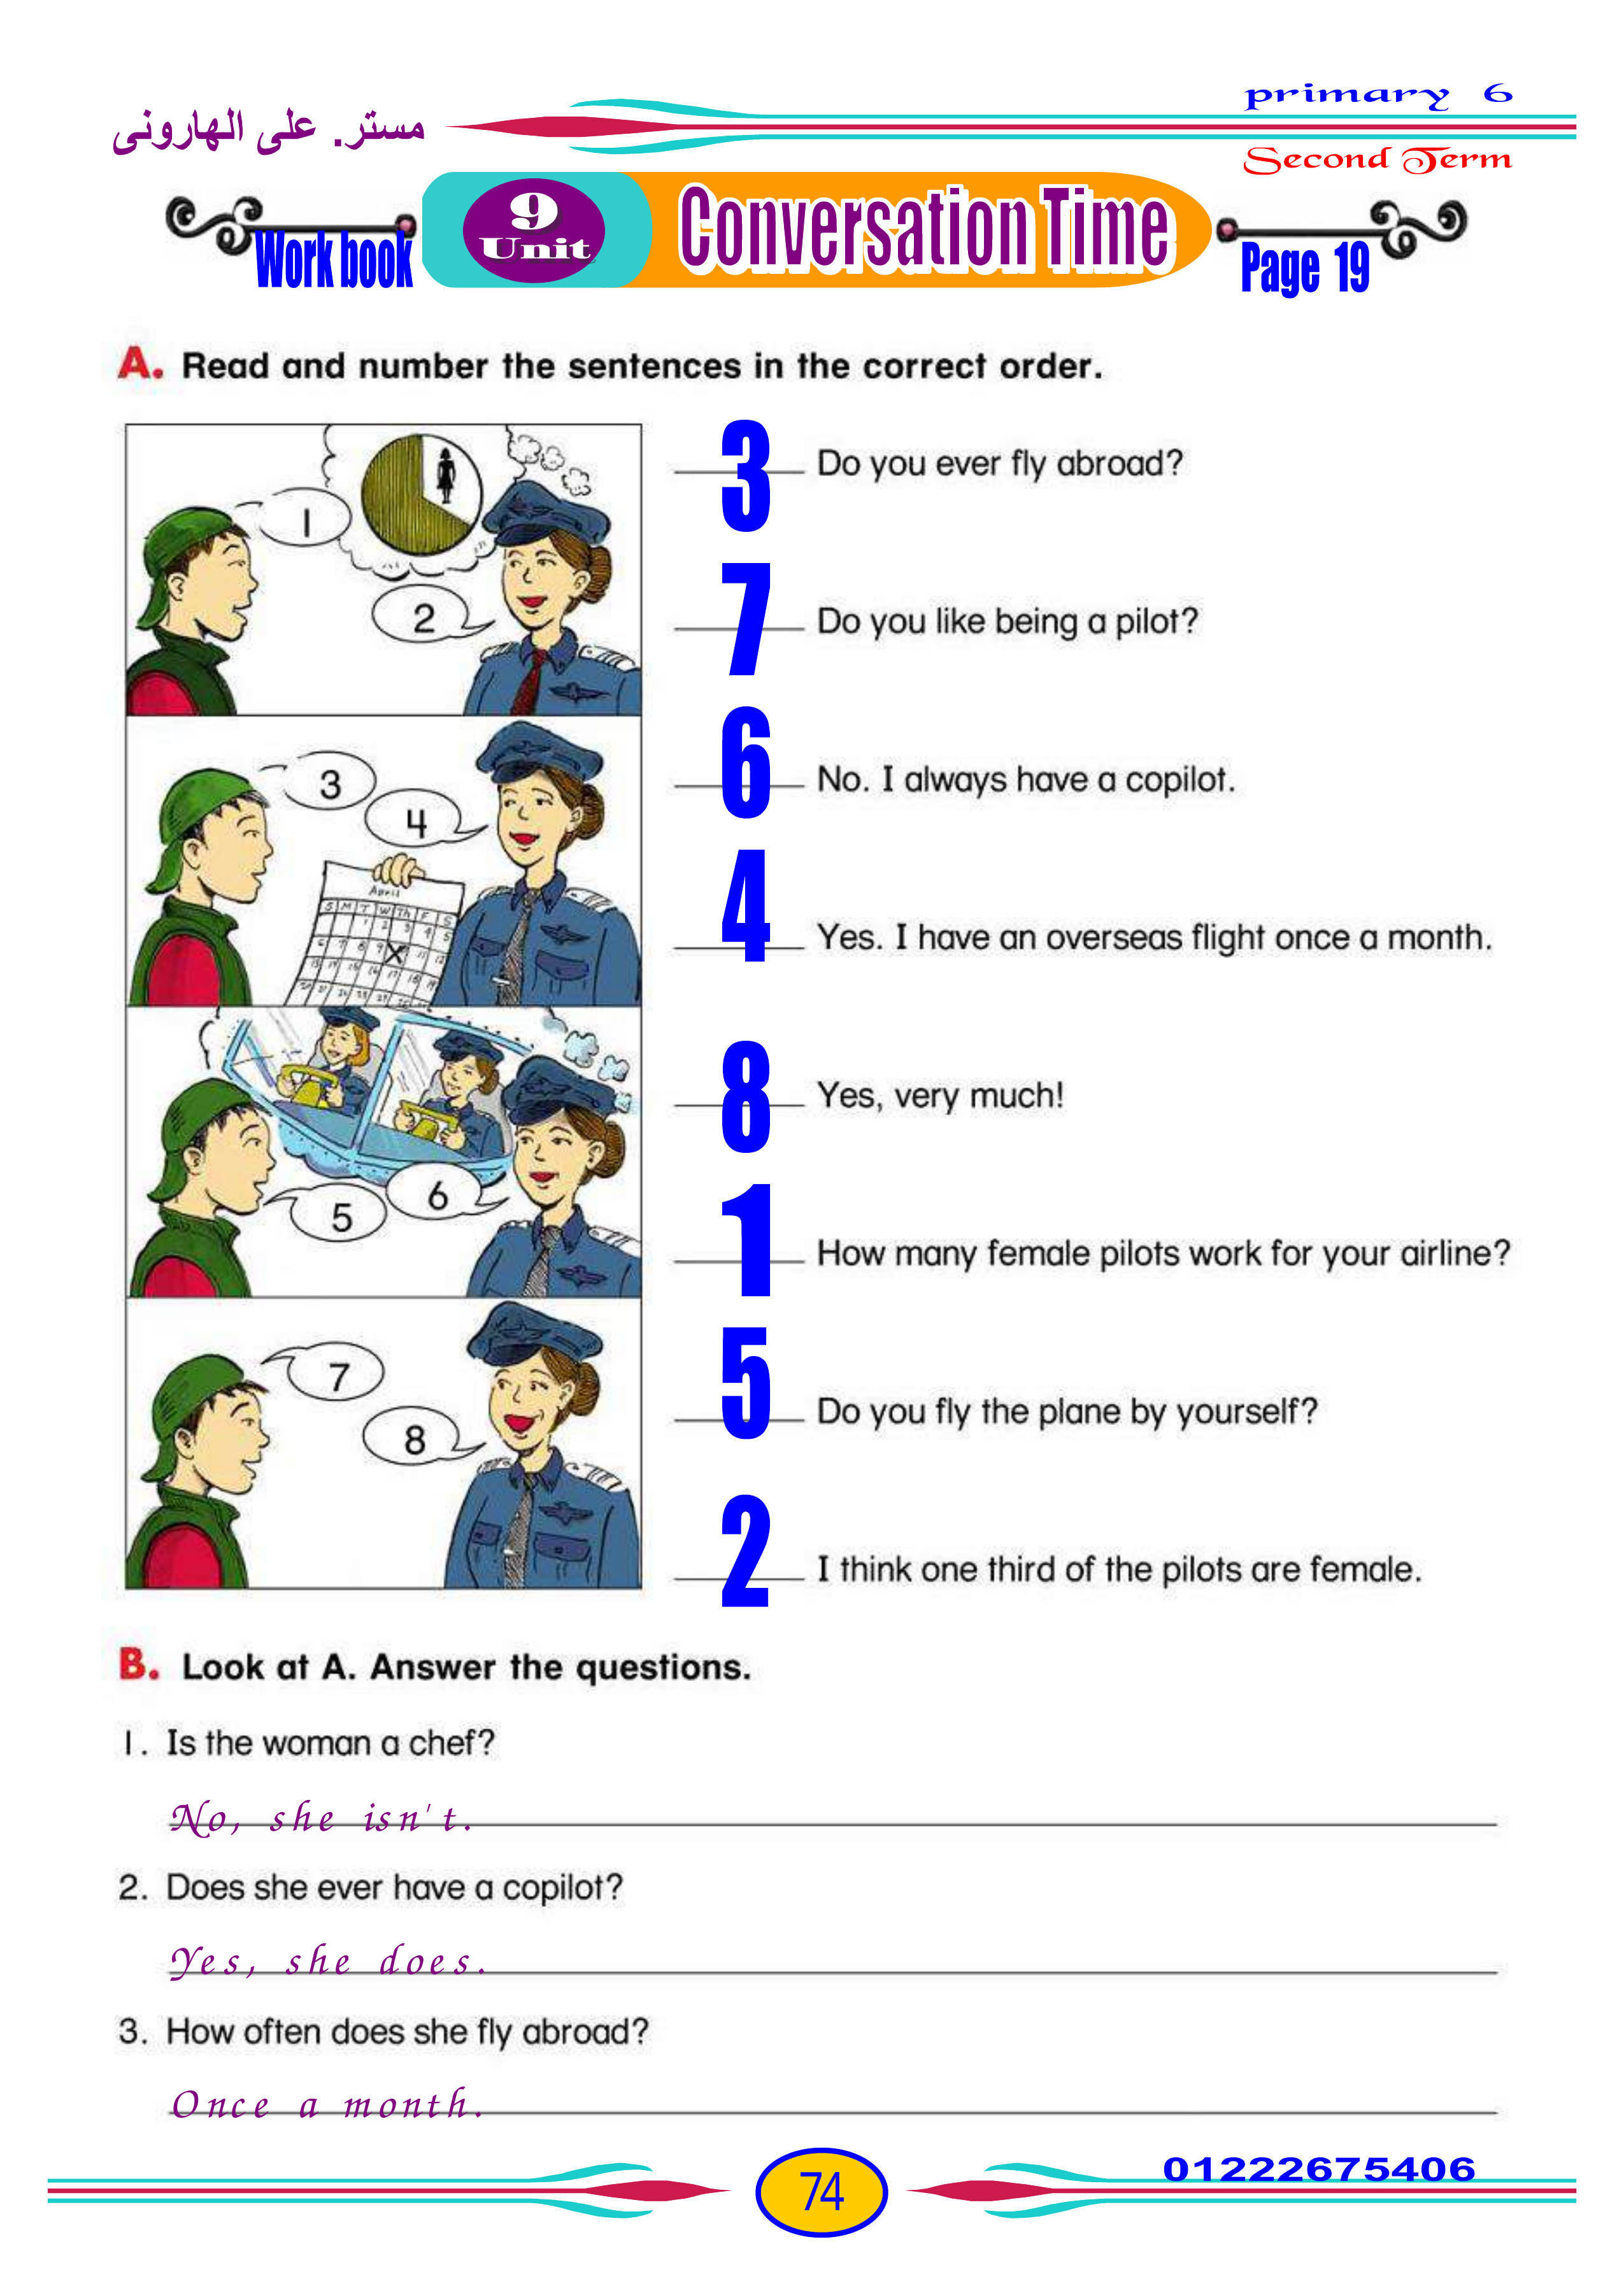 مستر. على الهارونى
primary 6
Second Term
Work book
9
Unit
Conversation Time
Page 19
A. Read and number the sentences in the correct order.
1
2
3
4
April
S M T W Th F S
5
6
7
8
3 Do you ever fly abroad?
7 Do you like being a pilot?
6 No. I always have a copilot.
4 Yes. I have an overseas flight once a month.
8 Yes, very much!
1 How many female pilots work for your airline?
5 Do you fly the plane by yourself?
2 I think one third of the pilots are female.
B. Look at A. Answer the questions.
1. Is the woman a chef?
No, she isn't.
2. Does she ever have a copilot?
Yes, she does.
3. How often does she fly abroad?
Once a month.
74
01222675406